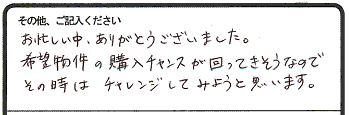 その他、ご記入ください
お忙しい中、ありがとうございました。
希望物件の購入チャンスが回ってきそうなので
その時は チャレンジしてみようと思います。